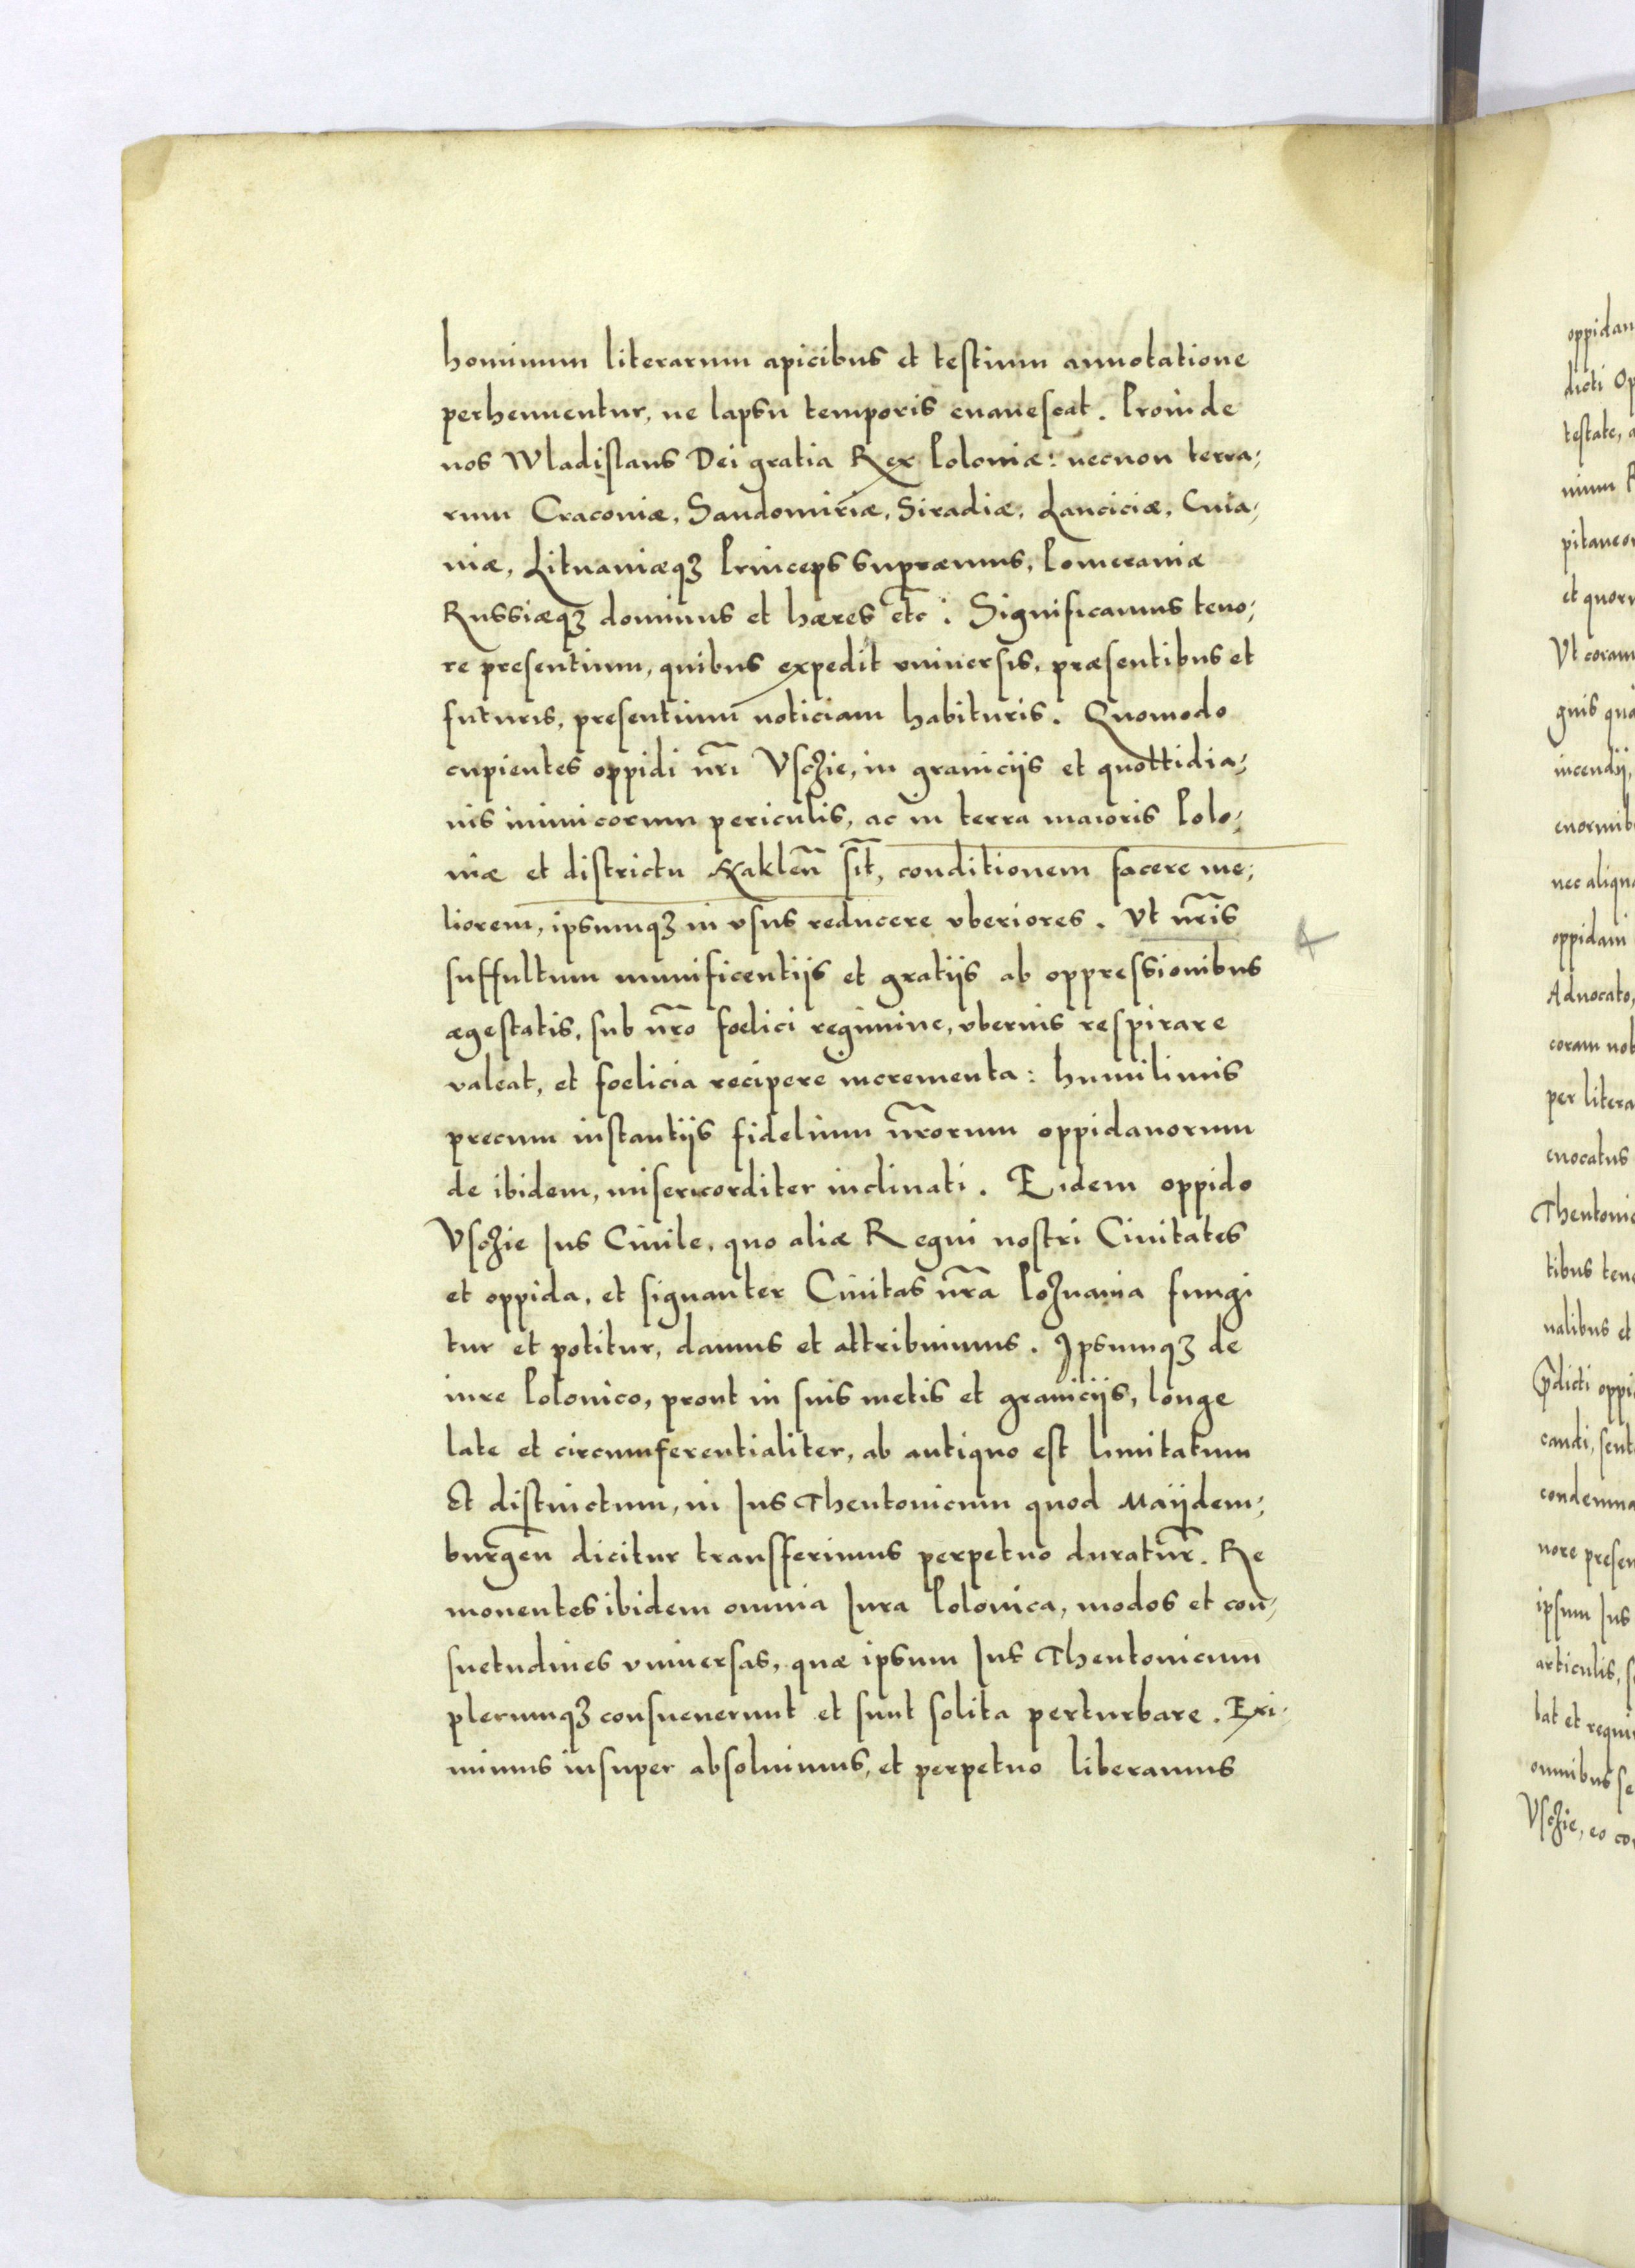 hominum literarum apicibus et testium annotatione
perhennentur, ne lapsu temporis euanescat. Proinde
nos Wladislaus Dei gratia Rex Poloniæ: necnon terra;
rum Cracouiæ, Sandomiriæ, Siradiæ, Lanciciæ, Cuia;
uiæ, Lituaniæqꝫ Princeps supræmus, Pomeraniæ
Russiæqꝫ dominus et hæres etc̄: Significamus teno;
re presentium, quibus expedit vniuersis, præsentibus et
futuris, presentium noticiam habituris. Quomodo
cupientes oppidi nr̄i Vsczie, in graniciis et quottidia;
nis inimicorum periculis, ac in terra maioris Polo;
niæ et districtu Naklen̄ sit̄, conditionem facere me;
liorem, ipsumqꝫ in vsus reducere vberiores. Vt nr̄is
suffultum munificentijs et gratijs ab oppressionibus
ægestatis, sub nr̄o foelici regimine, vberius respirare
valeat, et foelicia recipere incrementa: humilimis
precum instantijs fidelium nr̄orum oppidanorum
de ibidem, misericorditer inclinati. Eidem oppido
Vsczie Ius Ciuile, quo aliæ Regni nostri Ciuitates
et oppida, et signanter Ciuitas nr̄a Poznania fungi
tur et potitur, damus et attribuimus. Ipsumqꝫ de
iure Polonico, prout in suis metis et granicijs, longe
late et circumferentialiter, ab antiquo est limitatum
Et distinctum, in Ius Theutonicum quod Maydem;
burgen̄ dicitur transfferimus perpetuo duratur̄. Re
mouentes ibidem omnia Iura Polonica, modos et con;
suetudines vniuersas, quæ ipsum Ius Theutonicum
plerumqꝫ consueuerunt et sunt solita perturbare. Exi;
mimus insuper absoluimus, et perpetuo liberamus
oppidan
dicti Op
testate, a
nium R
pitaneor
et quoru
Vt coram
gnis qua
incendij,
enormib
nec aliqu
oppidani
Aduocato,
coram nob
per litera
euocatus
Theutonic
tibus tene
ualibus et
p̄dicti oppi
candi, sent
condemna
nore presen
ipsum Ius
articulis, s
bat et requi
omnibus se
Vsczie, eo co